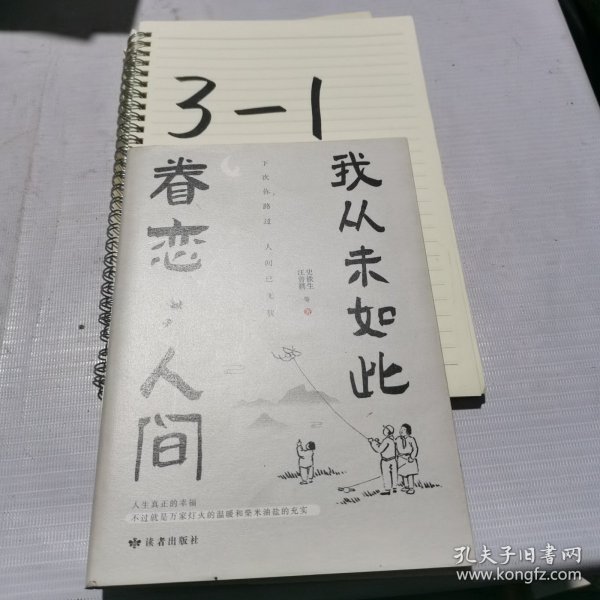 3-1
我从未如此
眷恋人间
下次你路过，人间已无我
史铁生
汪曾祺
等
著
人生真正的幸福
不过就是万家灯火的温暖和柴米油盐的充实
读者出版社
孔夫子旧书网
www.kongfz.com